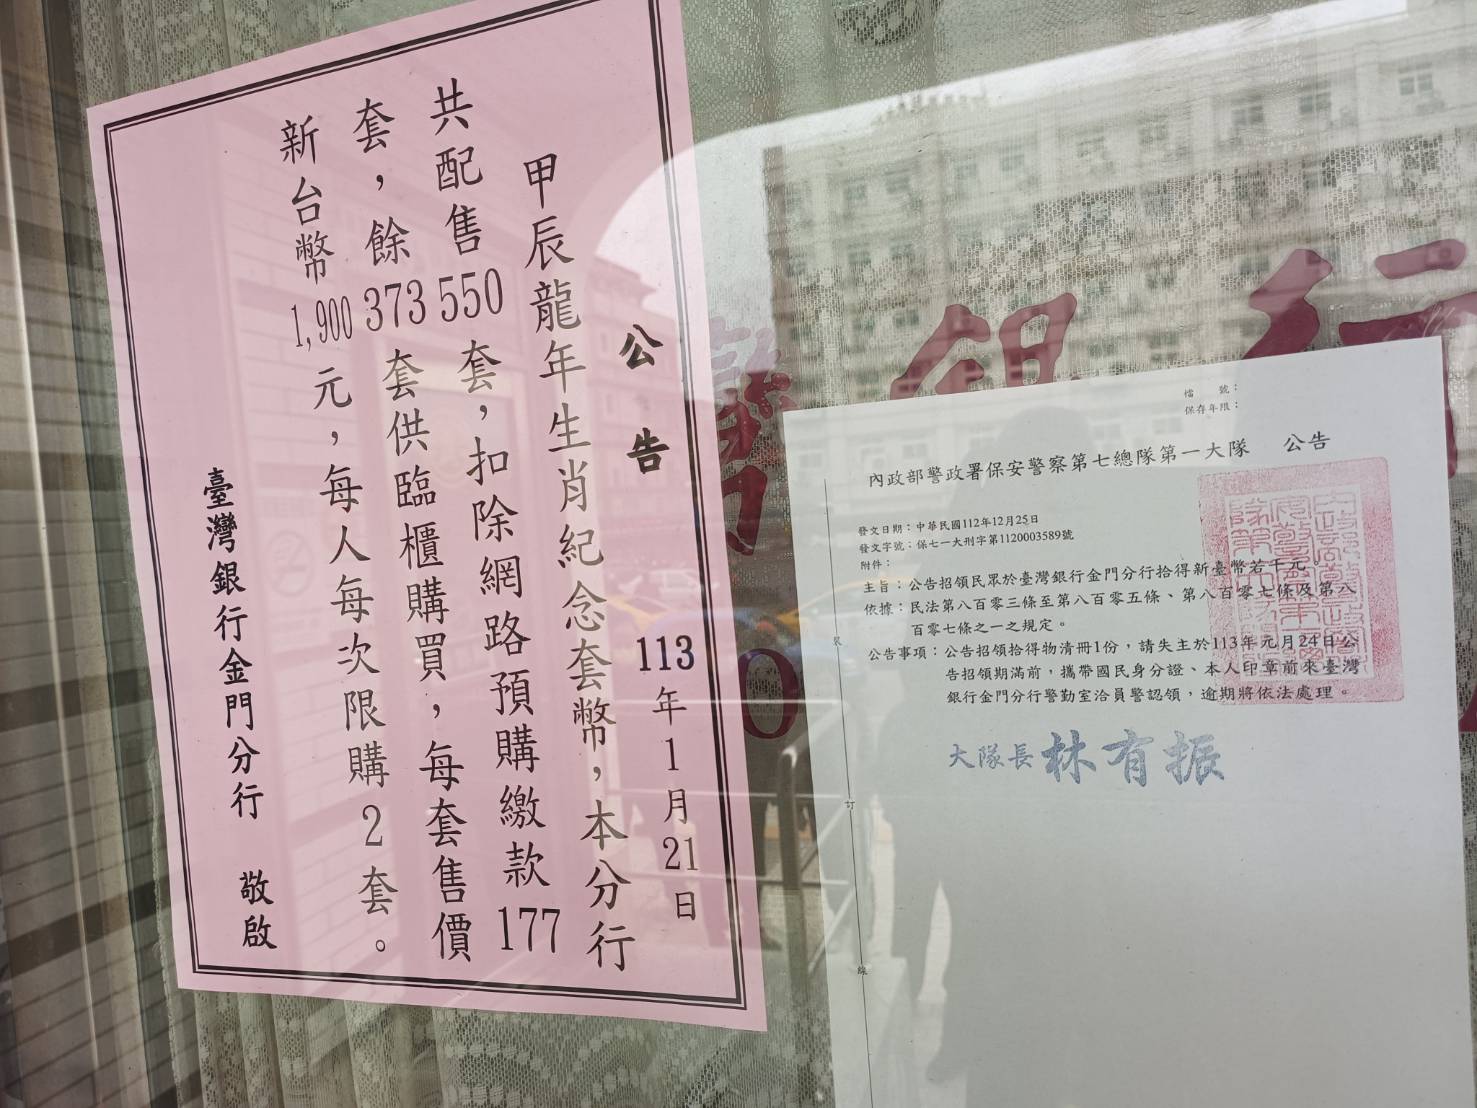 公告
113年1月21日
甲辰龍年生肖紀念套幣，本分行
共配售550套，扣除網路預購繳款177
套，餘373套供臨櫃購買，每套售價
新台幣1,900元，每人每次限購2套。
臺灣銀行金門分行 敬啟
銀行
檔　　號：
保存年限：
內政部警政署保安警察第七總隊第一大隊　公告
發文日期：中華民國112年12月25日
發文字號：保七一大刑字第1120003589號
附件：
主旨：公告招領民眾於臺灣銀行金門分行拾得新臺幣若干元。
依據：民法第八百零三條至第八百零五條、第八百零七條及第八
百零七條之一之規定。
公告事項：公告招領拾得物清冊1份，請失主於113年元月24日公
告招領期滿前，攜帶國民身分證、本人印章前來臺灣
銀行金門分行警勤室洽員警認領，逾期將依法處理。
大隊長 林有振
訂
線